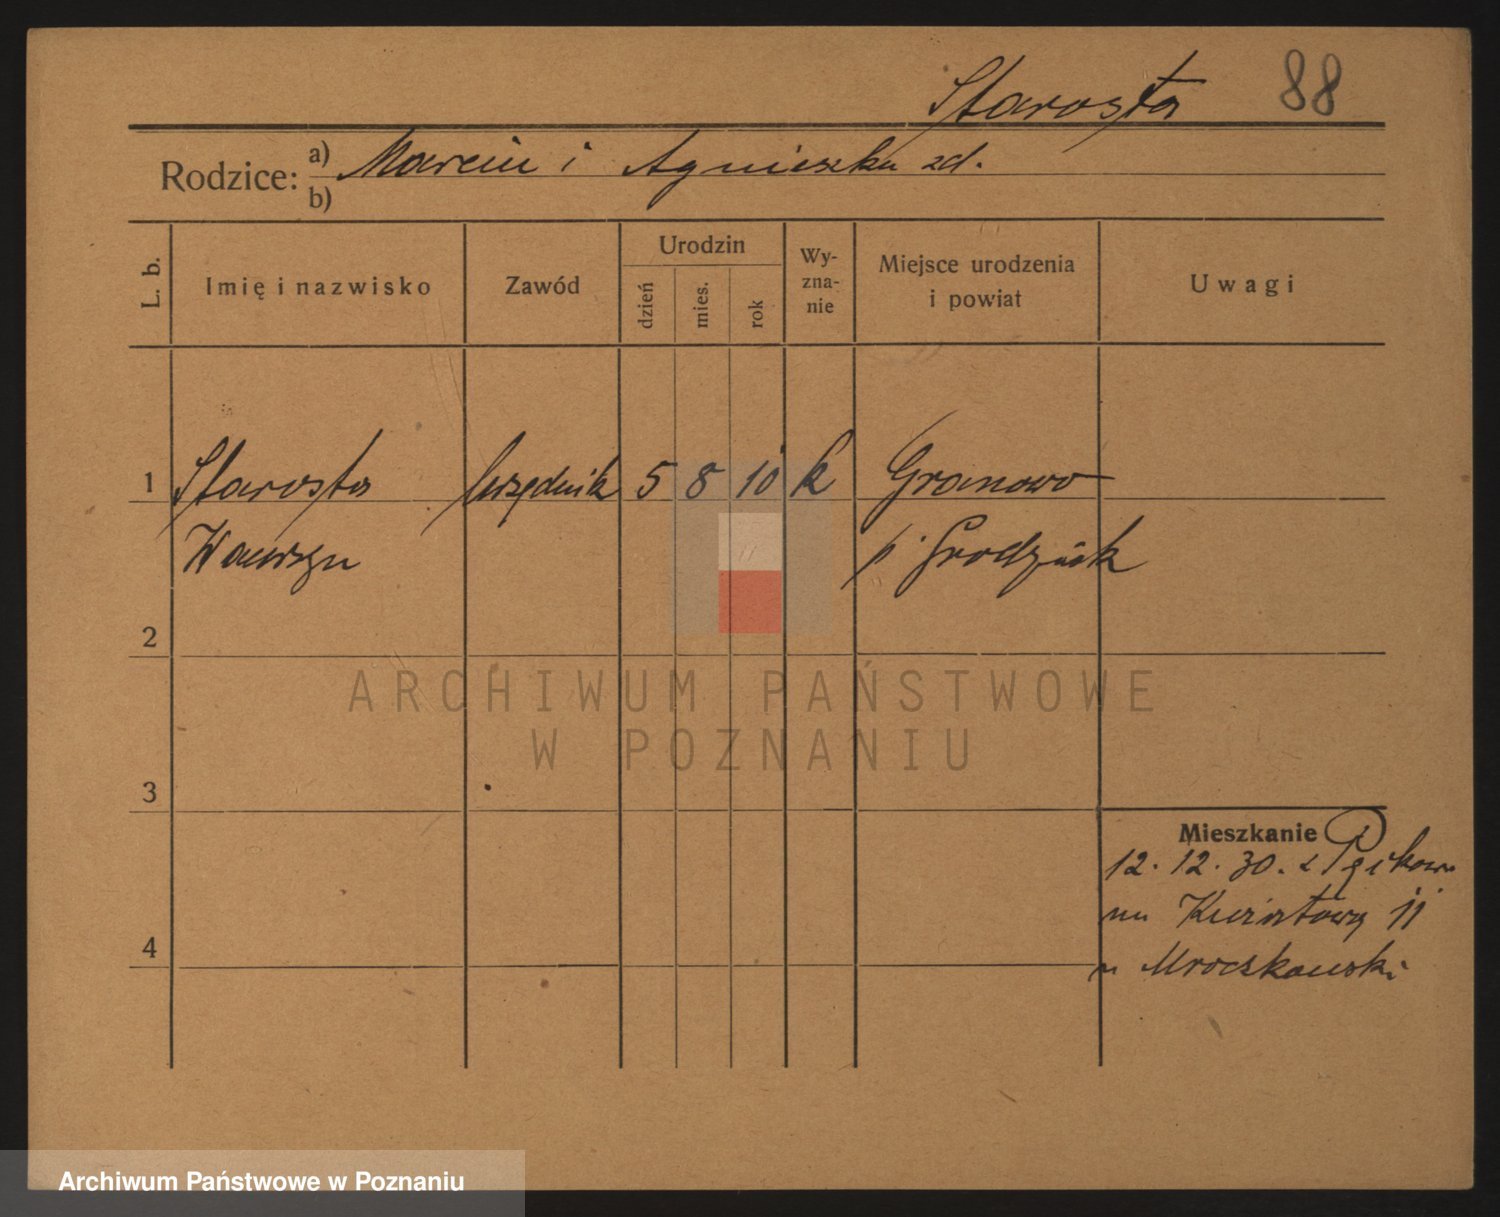 Starosta 88
Rodzice: a) Marcin i Agnieszka zd.
b)
L. b. Imię i nazwisko Zawód Urodzin dzień mies. rok Wy-zna-nie Miejsce urodzenia i powiat Uwagi
1 Starosta urzędnik 5 8 10 k Granowo
Wawrzyn p. Grodzisk
2
ARCHIWUM PAŃSTWOWE
W POZNANIU
3
Mieszkanie
12. 12. 30. z
na Kwiatową 11
u Mroczkowski
4
Archiwum Państwowe w Poznaniu